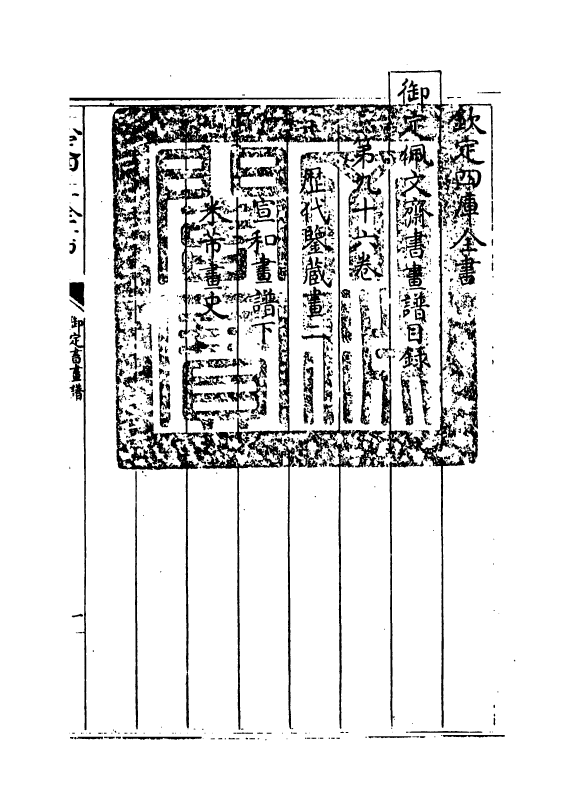 欽定四庫全書
御定佩文齋書畫譜目録
第九十六卷
歴代鑒藏畫二
宣和畫譜下
米芾畫史
御定書畫譜
一